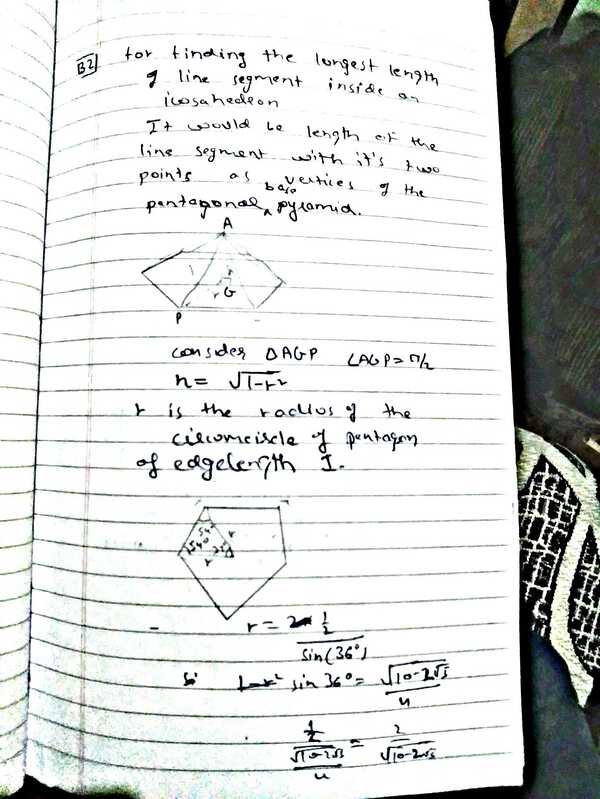 B2 for finding the longest length
of line segment inside an
icosahedron
It would be length of the
line segment with it's two
points as vertices of the
base
pentagonal ^ pyramid.
A
1 r
r G
P
consider ΔAGP ∠AGP = π/2
h = √1-r²
r is the radius of the
circumcircle of pentagon
of edgelength 1.
54° r
54° 72
r
r = 1/2
sin(36°)
sin 36° = √10-2√5
4
1/2 = 2
√10-2√5 √10-2√5
4